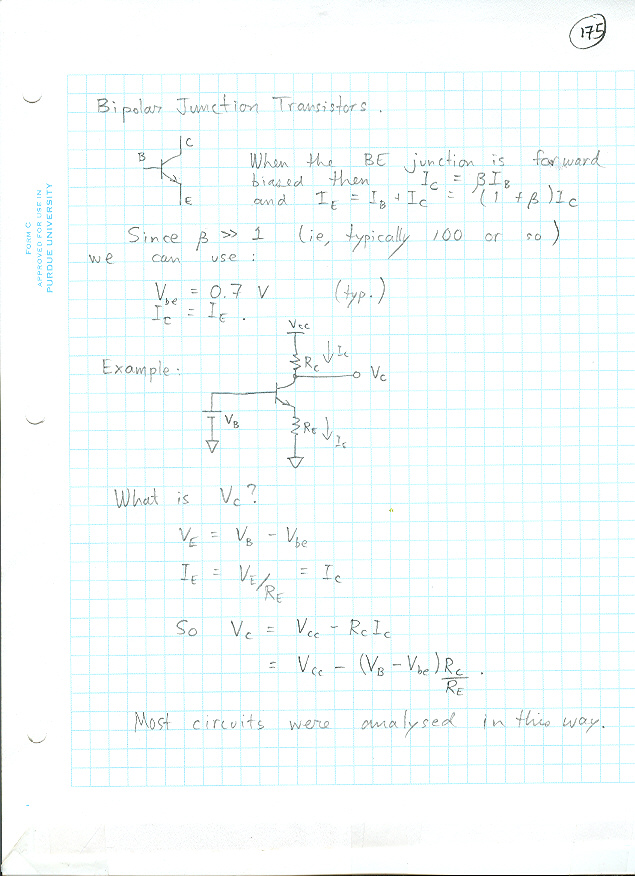 175
FORM C
APPROVED FOR USE IN
PURDUE UNIVERSITY
Bipolar Junction Transistors.
C
B
E
When the BE junction is forward
biased then I_C = βI_B
and I_E = I_B + I_C = (1 + β)I_C
Since β >> 1 (ie, typically 100 or so)
we can use:
V_be = 0.7 V (typ.)
I_C = I_E.
Example:
Vcc
R_C ↓ I_C
V_C
V_B
R_E ↓ I_C
What is V_C?
V_E = V_B - V_be
I_E = V_E/R_E = I_C
So V_C = V_cc - R_C I_C
= V_cc - (V_B - V_be) R_C/R_E.
Most circuits were analysed in this way.